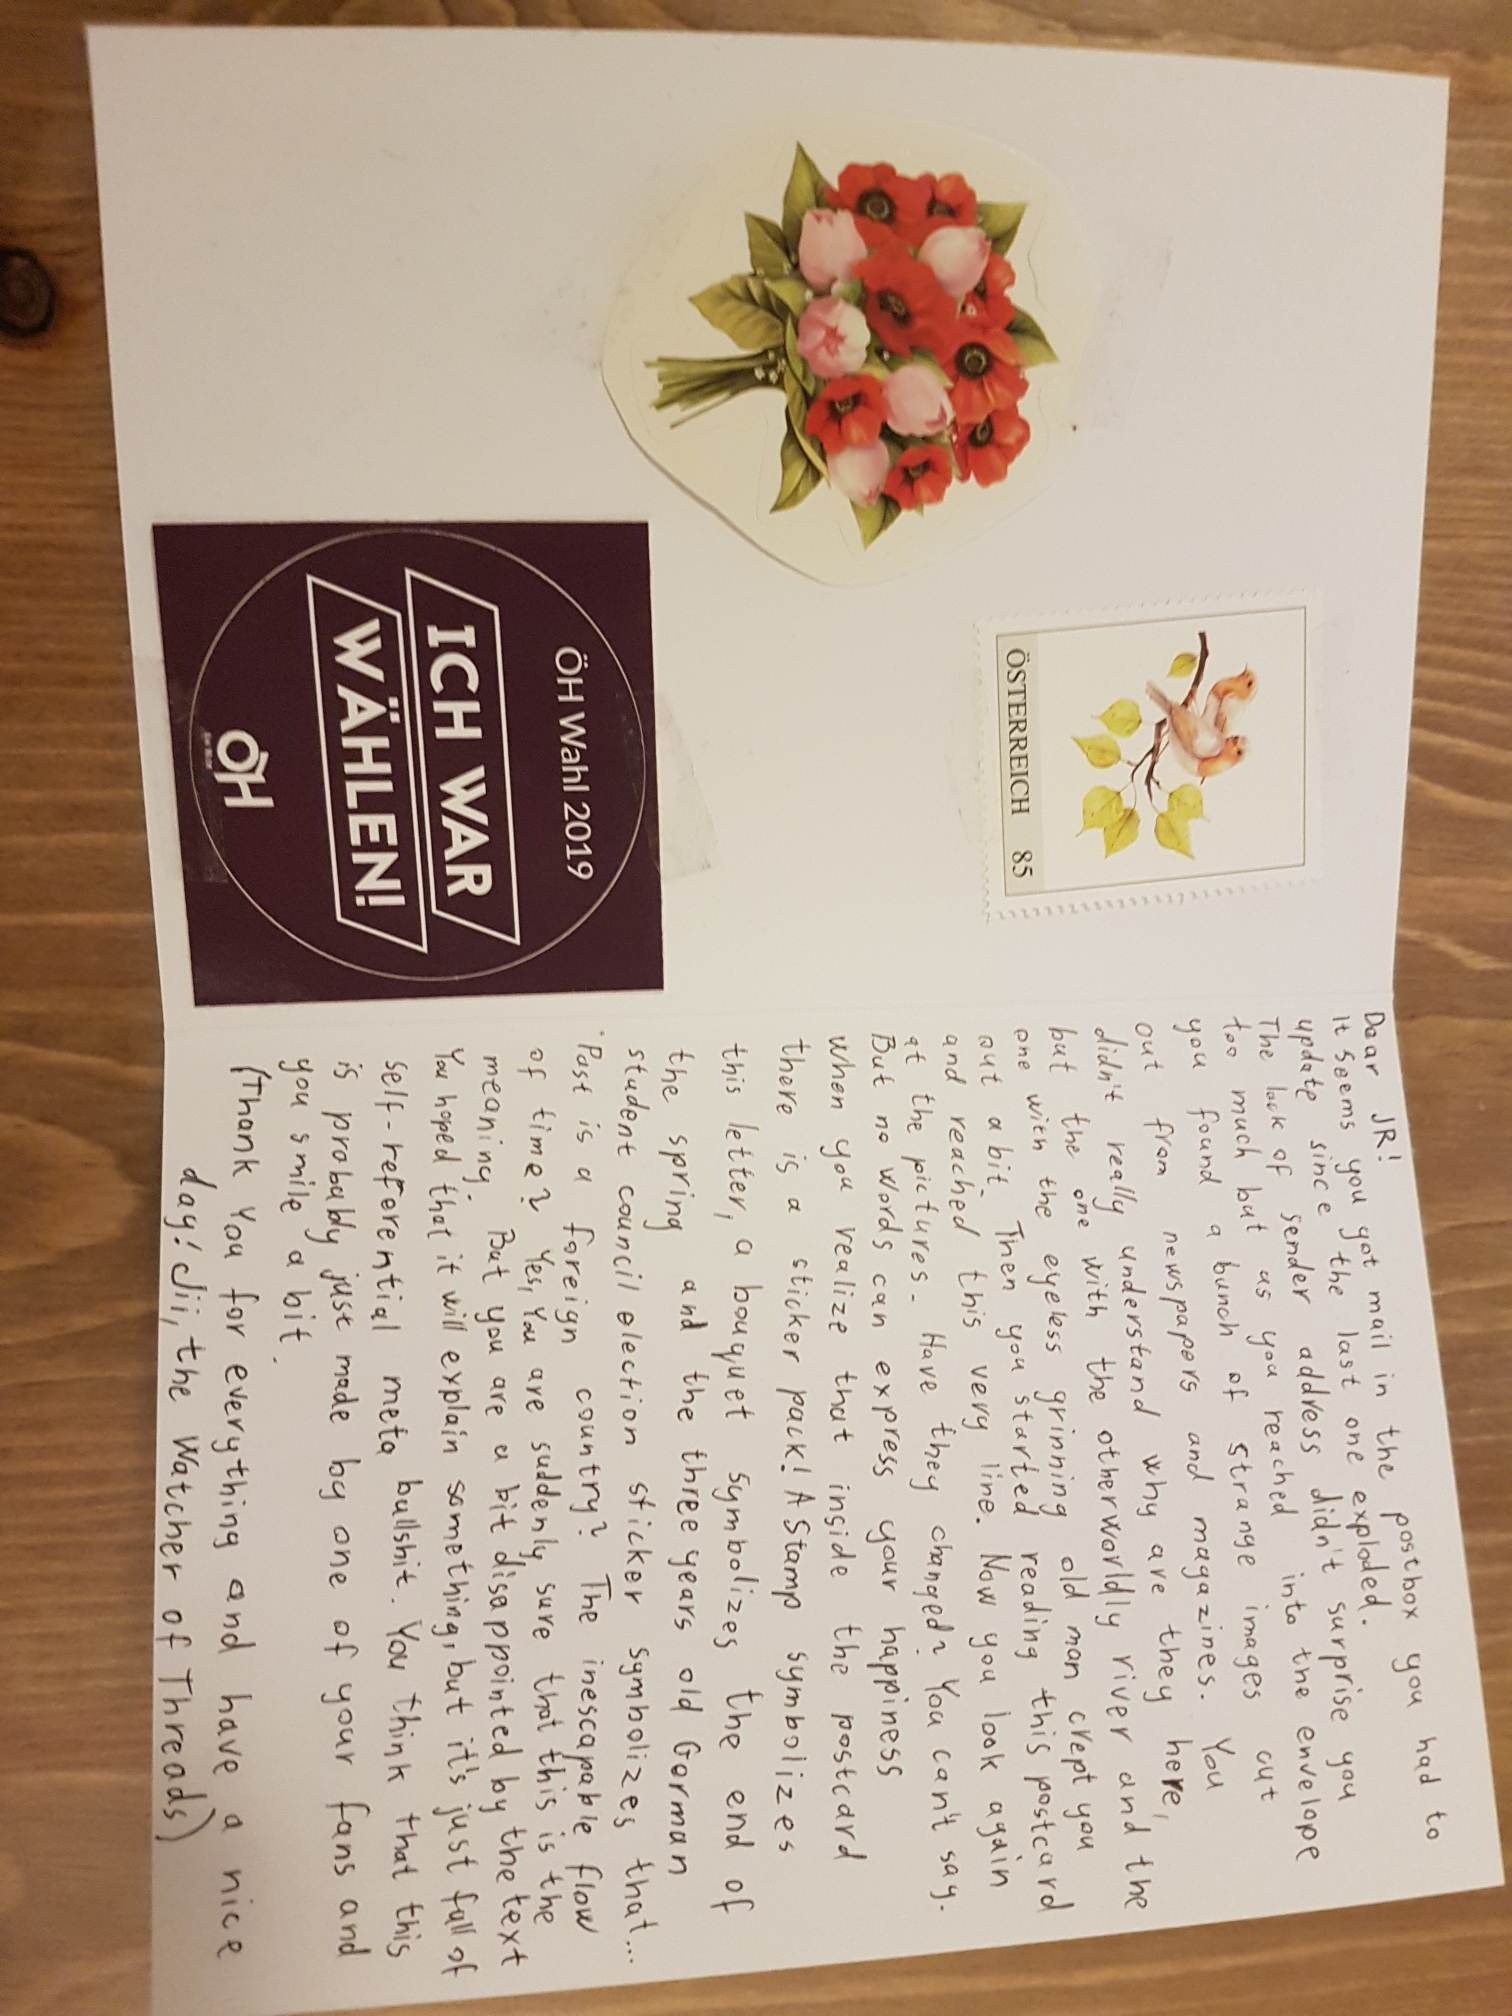 ÖSTERREICH 85
ÖH Wahl 2019
ICH WAR
WÄHLEN!
ÖH
Dear JR!
It seems you got mail in the postbox you had to
update since the last one exploded.
The lack of sender address didn't surprise you
too much but as you reached into the envelope
you found a bunch of strange images cut
out from newspapers and magazines. You
didn't really understand why are they here,
but the one with the otherworldly river and the
one with the eyeless grinning old man crept you
out a bit. Then you started reading this postcard
and reached this very line. Now you look again
at the pictures. Have they changed? You can't say.
But no words can express your happiness
when you realize that inside the postcard
there is a sticker pack! A Stamp symbolizes
this letter, a bouquet symbolizes the end of
the spring and the three years old German
student council election sticker symbolizes that...
Past is a foreign country? The inescapable flow
of time? Yes, You are suddenly sure that this is the
meaning. But you are a bit disappointed by the text
You hoped that it will explain something, but it's just full of
self-referential meta bullshit. You think that this
is probably just made by one of your fans and
you smile a bit.
(Thank You for everything and have a nice
day! Jii, the Watcher of Threads)